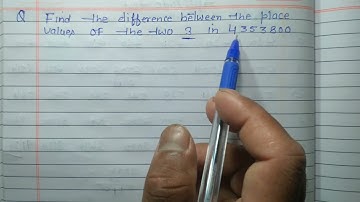 Q Find the difference between the place
values of the two 3 in 4353800